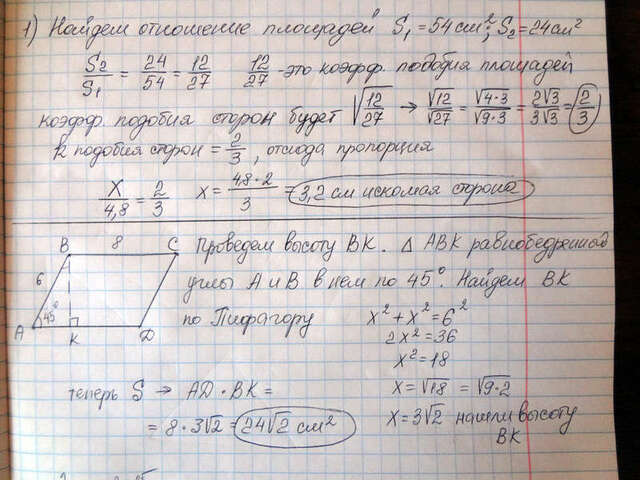 1) Найдем отношение площадей S₁ = 54 см²; S₂ = 24 см²
S₂/S₁ = 24/54 = 12/27 12/27 - это коэфф. подобия площадей
коэфф. подобия сторон будет √(12/27) → √12/√27 = √(4·3)/√(9·3) = 2√3/3√3 = 2/3
k подобия сторон = 2/3, отсюда пропорция
x/4,8 = 2/3 x = 4,8·2/3 = 3,2 см искомая сторона
B 8 C
6
A 45° K D
Проведем высоту BK. Δ ABK равнобедренный
углы A и B в нем по 45°. Найдем BK
по Пифагору x² + x² = 6²
2x² = 36
x² = 18
теперь S → AD · BK = x = √18 = √(9·2)
= 8 · 3√2 = 24√2 см² x = 3√2 нашли высоту
BK